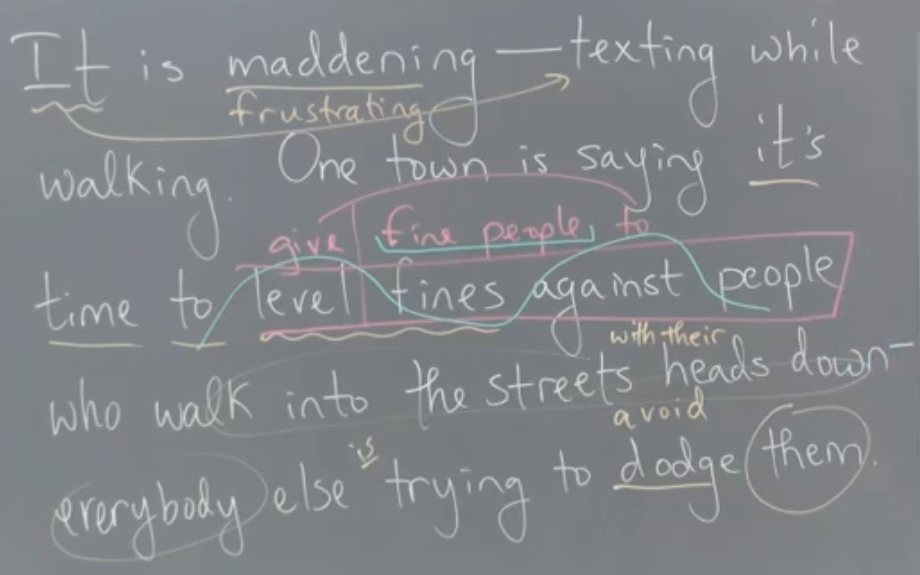 It is maddening — texting while
frustrating
walking. One town is saying it's
give fine people to
time to level fines against people
with their
who walk into the streets heads down-
avoid
is
everybody else trying to dodge them.